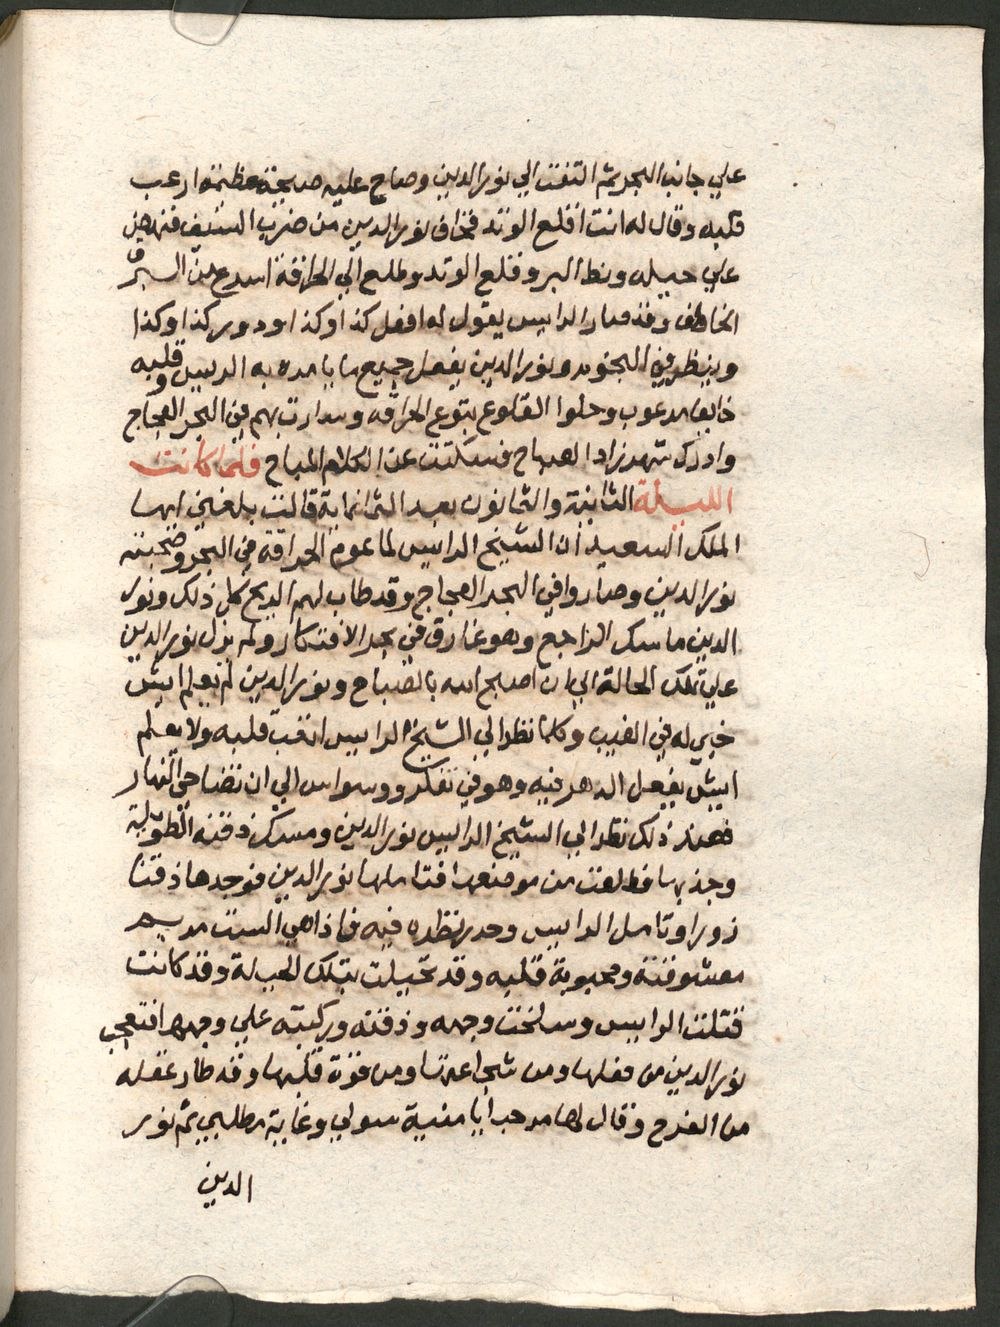 علي جانب البحر ثم التفت الي نور الدين وصاح عليه صيحة عظيمة ارعب
قلبه وقال له انت اقلع الوتد فخاف نور الدين من ضرب السيف فنهض
علي حيله ونط البر وقلع الوتد وطلع الي الحراقة اسرع من البرق
الخاطف وقد صار الرايس يقول له افعل كذا وكذا ودور كذا وكذا
وينظر في النجوم ونور الدين يفعل جميع ما يامره به الريس وقلبه
خايفا مرعوب وحلوا القلوع بتوع الحراقه وسارت بهم في البحر العجاج
وادرك شهرزاد الصباح فسكتت عن الكلام المباح فلما كانت
الليلة الثانية والثمانون بعد الثمانماية قالت بلغني ايها
الملك السعيد ان الشيخ الرايس لما عوم الحراقة في البحر وصحبته
نور الدين وصاروا في البحر العجاج وقد طاب لهم الريح كل ذلك ونور
الدين ماسك الراجع وهو غارق في بحر الافتكار ولم يزل نور الدين
علي تلك الحالة الي ان اصبح الله بالصباح ونور الدين لم يعلم ايش
خبي له في الغيب وكلما نظر الي الشيخ الرايس ارتعب قلبه ولا يعلم
ايش يفعل الدهر فيه وهو في تفكر ووسواس الي ان تضاحى النهار
فعند ذلك نظر الي الشيخ الرايس نور الدين ومسك ذقنه الطويلة
وجذبها فطلعت من موضعها فتاملها نور الدين فوجدها ذقنا
زورا وتامل الرايس وحرر نظره فيه فاذا هي الست مريم
معشوقته ومحبوبة قلبه وقد تحيلت بتلك الحيلة وقد كانت
قتلت الرايس وسلخت وجهه وذقنه وركبته علي وجهها فتعجب
نور الدين من فعلها ومن شجاعتها ومن قوة قلبها وقد طار عقله
من الفرح وقال لها مرحبا يا منية سولي وغاية مطلبي ثم نور
الدين